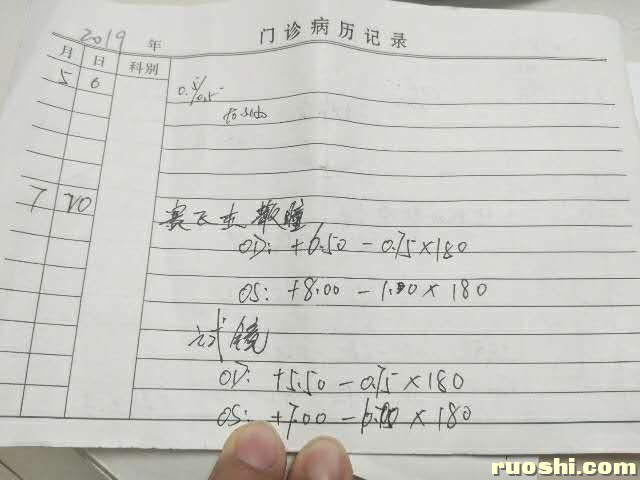 门诊病历记录
2019 年
月 日 科别
5 6
0.5/0.5
7 20
赛飞杰 散瞳
OD: +6.50 - 0.75 × 180
OS: +8.00 - 1.00 × 180
试镜
OD: +5.50 - 0.75 × 180
OS: +7.00 - × 180
ruoshi.com